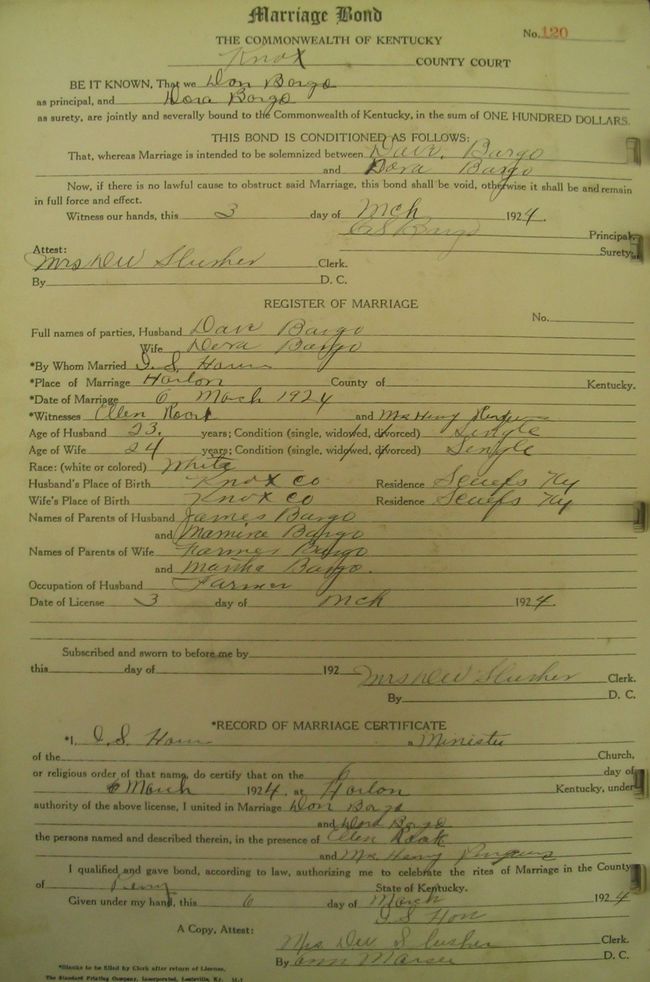 Marriage Bond
No. 120
THE COMMONWEALTH OF KENTUCKY
Knox COUNTY COURT
BE IT KNOWN, That we Don Bargo
as principal, and Dora Bargo
as surety, are jointly and severally bound to the Commonwealth of Kentucky, in the sum of ONE HUNDRED DOLLARS.
THIS BOND IS CONDITIONED AS FOLLOWS:
That, whereas Marriage is intended to be solemnized between Bargo
and Dora Bargo
Now, if there is no lawful cause to obstruct said Marriage, this bond shall be void, otherwise it shall be and remain
in full force and effect.
Witness our hands, this 3 day of Mch 1924.
Principal.
Attest: Surety.
Mrs DW Slusher Clerk.
By D. C.
REGISTER OF MARRIAGE
No.
Full names of parties, Husband Bargo
Wife Dora Bargo
*By Whom Married
*Place of Marriage Harlon County of Kentucky.
*Date of Marriage 6 March 1924
*Witnesses Ellen and Mrs Henry
Age of Husband 23. years; Condition (single, widowed, divorced) Single
Age of Wife 24 years; Condition (single, widowed, divorced) Single
Race: (white or colored) White
Husband's Place of Birth Knox Co Residence Ky
Wife's Place of Birth Knox Co Residence Ky
Names of Parents of Husband James Bargo
and Bargo
Names of Parents of Wife Bargo
and Martha Bargo.
Occupation of Husband Farmer
Date of License 3 day of Mch 1924.
Subscribed and sworn to before me by
this day of 192 Mrs DW Slusher Clerk.
By D. C.
*RECORD OF MARRIAGE CERTIFICATE
*I, a Minister
of the Church,
or religious order of that name, do certify that on the day of
6 March 1924. at Harlon Kentucky, under
authority of the above license, I united in Marriage Don Bargo
and Dora Bargo
the persons named and described therein, in the presence of Ellen
and Mrs Henry
I qualified and gave bond, according to law, authorizing me to celebrate the rites of Marriage in the County
of State of Kentucky.
Given under my hand, this 6 day of March 1924
A Copy, Attest:
Mrs DW Slusher Clerk.
By D. C.
*Blanks to be filled by Clerk after return of License.
The Standard Printing Company, Incorporated, Louisville, Ky.